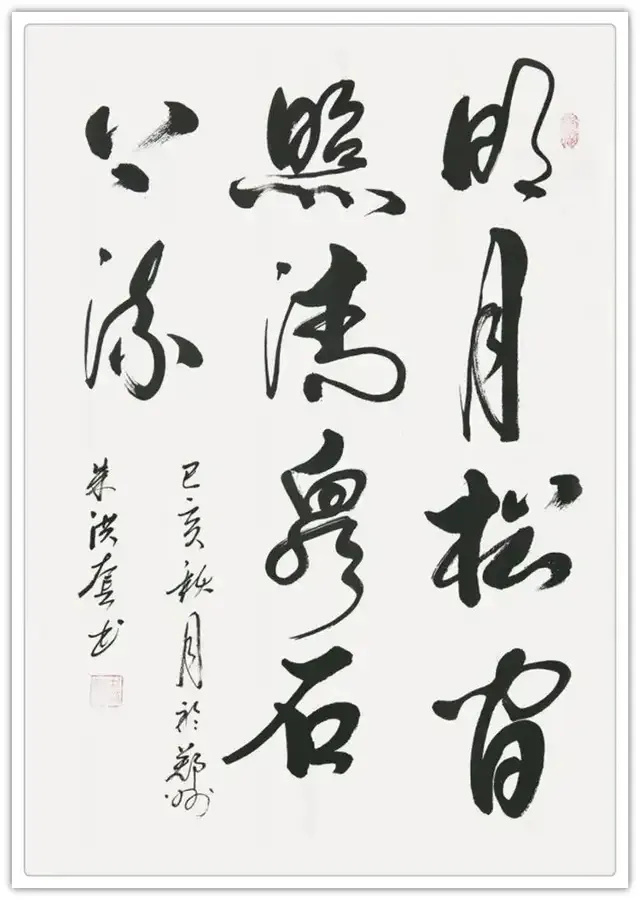 明月松間
照清泉石
上流
己亥秋月於鄭州
朱洪 书